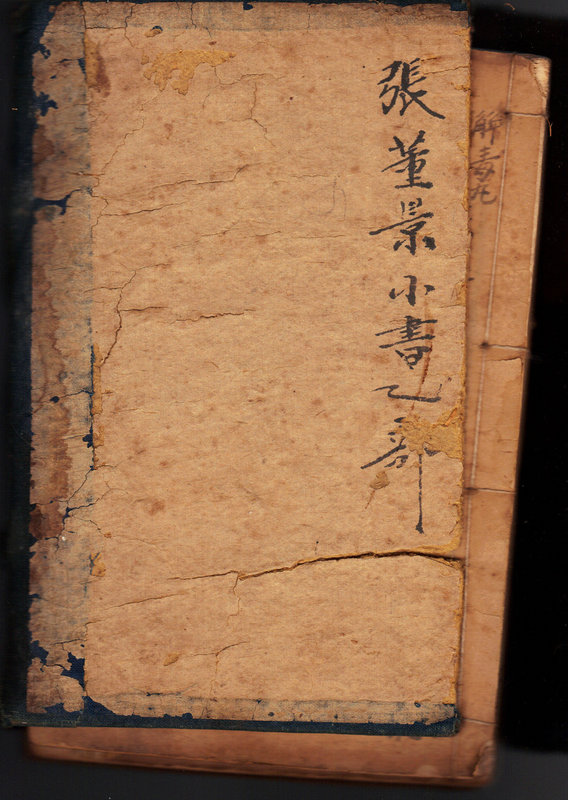 張董景小書乙部
解毒丸